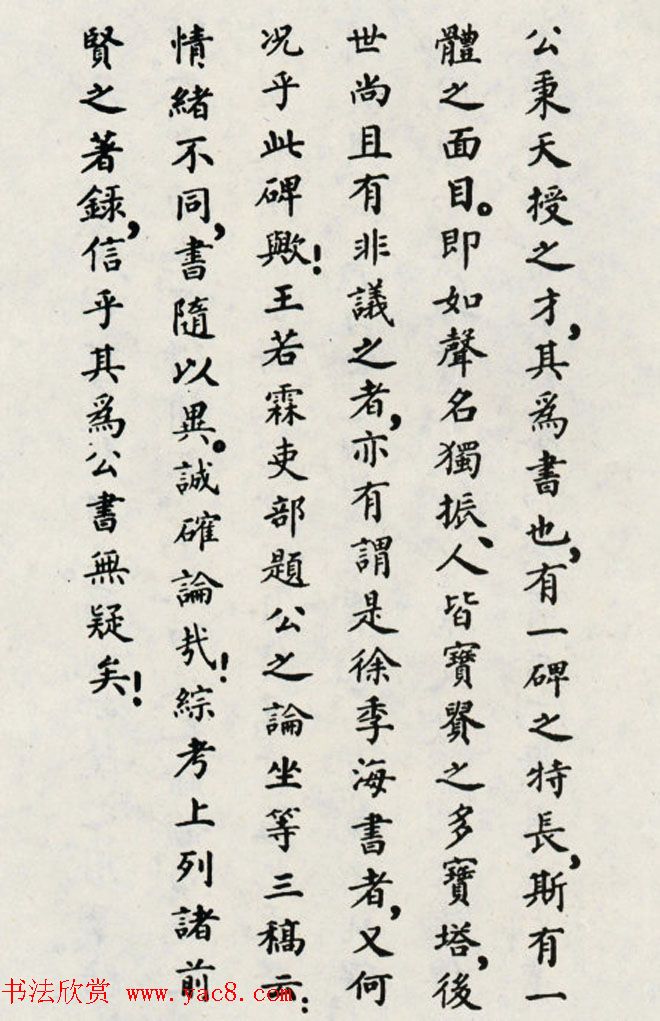 公秉天授之才，其爲書也，有一碑之特長，斯有一
體之面目。即如聲名獨振、人皆寶翫之多寶塔，後
世尚且有非議之者，亦有謂是徐季海書者，又何
况乎此碑歟！王若霖吏部題公之論坐等三稿云：
情緒不同，書隨以異。誠確論哉！綜考上列諸前
賢之著録，信乎其爲公書無疑矣！
书法欣赏 www.yac8.com